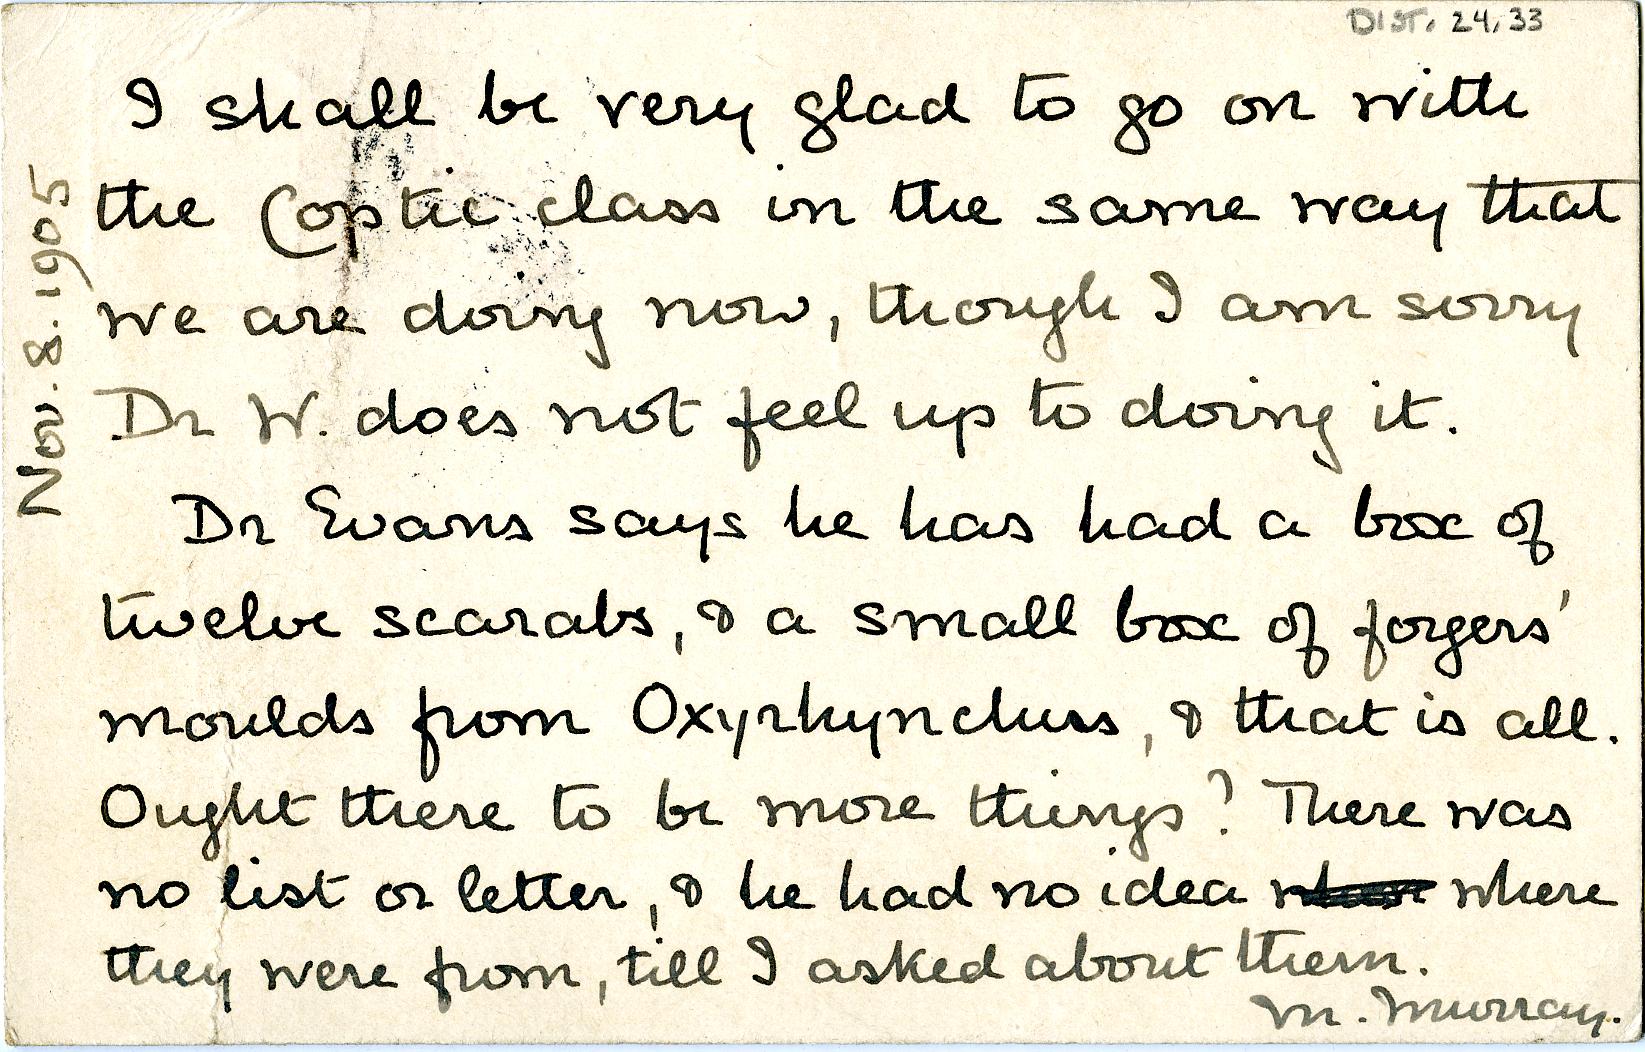 DIST. 24,33
Nov. 8. 1905
I shall be very glad to go on with
the Coptic class in the same way that
we are doing now, though I am sorry
Dr W. does not feel up to doing it.
Dr Evans says he has had a box of
twelve scarabs, & a small box of forgers'
moulds from Oxyrhynchus, & that is all.
Ought there to be more things? There was
no list or letter, & he had no idea where
they were from, till I asked about them.
M. Murray.